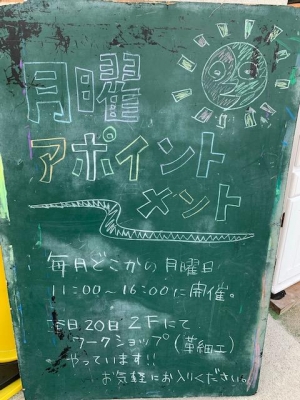 月曜
アポイント
メント
毎月どこかの月曜日
11:00~16:00に開催。
本日20日 2Fにて
ワークショップ(革細工)
やっています!!
お気軽にお入りください。